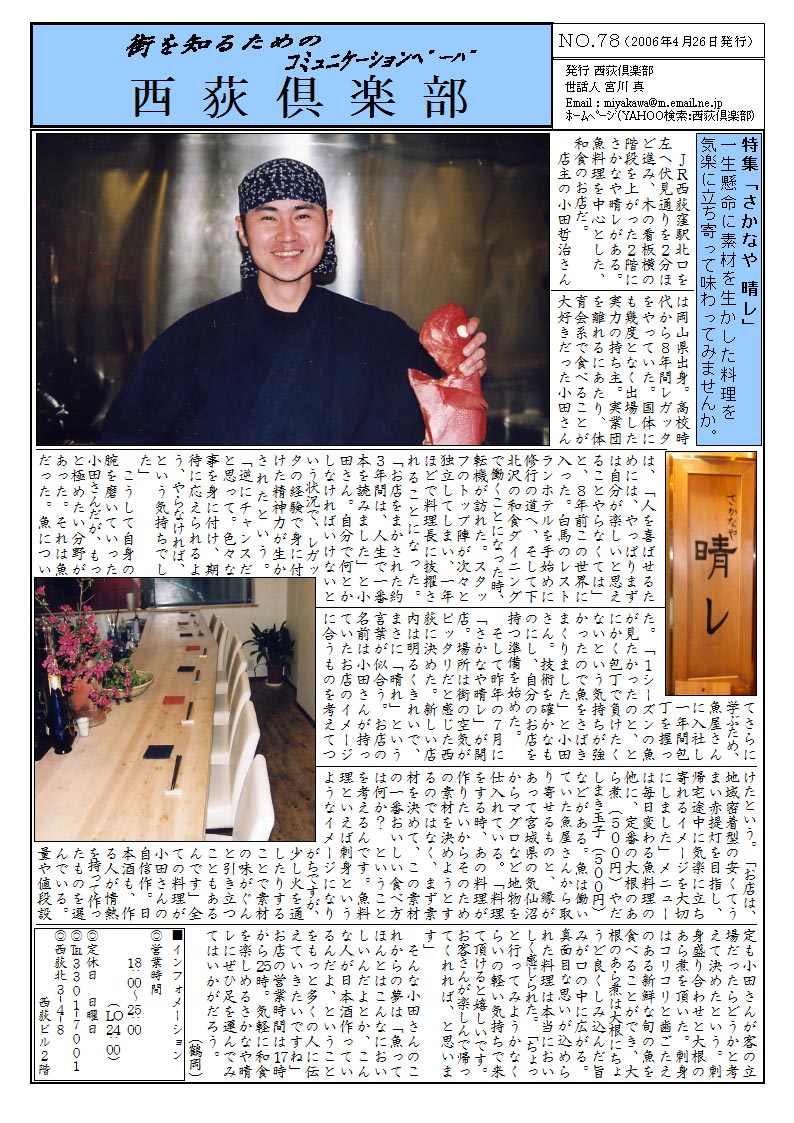 街を知るための
コミュニケーションペーパー
西荻倶楽部
NO.78（2006年4月26日発行）
発行 西荻倶楽部
世話人 宮川 真
Email：miyakawa@m.email.ne.jp
ホームページ（YAHOO検索:西荻倶楽部）
特集「さかなや 晴レ」
一生懸命に素材を生かした料理を
気楽に立ち寄って味わってみませんか。
ＪＲ西荻窪駅北口を
左へ伏見通りを２分ほ
ど進み、木の看板横の
階段を上がった２階に
さかなや晴レがある。
魚料理を中心とした、
和食のお店だ。
店主の小田哲治さん
は岡山県出身。高校時
代から８年間レガッタ
をやっていた。国体に
も幾度となく出場した
実力の持ち主。実業団
を離れるにあたり、体
育会系で食べることが
大好きだった小田さん
さかなや
晴レ
は、「人を喜ばせるた
めには、やっぱりまず
は自分が楽しいと思え
ることやらなくては」
と、８年前この世界に
入った。白馬のレスト
ランホテルを手始めに
修行の道へ、そして下
北沢の和食ダイニング
で働くことになった時、
転機が訪れた。スタッ
フのトップ陣が次々と
独立してしまい、一年
ほどで料理長に抜擢さ
れることになった。
「お店をまかされた約
３年間は、人生で一番
本を読みました」と小
田さん。自分で何とか
しなければいけないと
いう状況で、レガッ
タの経験で身に付
けた精神力が生か
されたという。
「逆にチャンスだ
と思って。色々な
事を身に付け、期
待に応えられるよ
う、やらなければ、
という気持ちでし
た」
こうして自身の
腕を磨いていった
小田さんだが、もっ
と極めたい分野が
あった。それは魚
だった。魚につい
てさらに
学ぶため、
魚屋さん
に入社し
一年間包
丁を握っ
た。「１シーズンの魚
が見たかったのと、と
にかく包丁で負けたく
ないという気持ちが強
かったので魚をさばき
まくりました」と小田
さん。技術を確かなも
のにし、自分のお店を
持つ準備を始めた。
そして昨年の７月に
「さかなや晴レ」が開
店。場所は街の空気が
ピッタリだと感じた西
荻に決めた。新しい店
内は明るくきれいで、
まさに「晴れ」という
言葉が似合う。お店の
名前は小田さんが持っ
ていたお店のイメージ
に合うものを考えてつ
けたという。「お店は、
地域密着型の安くてう
まい赤提灯を目指し、
帰宅途中に気楽に立ち
寄れるイメージを大切
にしました」メニュー
は毎日変わる魚料理の
他に、定番の大根のあ
ら煮（５００円）やだ
しまき玉子（５００円）
などがある。魚は働い
ていた魚屋さんから取
り寄せるものと、縁が
あって宮城県の気仙沼
からマグロなど地物を
仕入れている。「料理
をする時、あの料理が
作りたいからそのため
の素材を決めようとす
るのではなく、まず素
材を決めて、この素材
の一番おいしい食べ方
は何か？ ということ
を考えるんです。魚料
理といえば刺身という
ようなイメージになり
がちですが、
少し火を通
したりする
ことで素材
の味がぐん
と引き立つ
こともある
んです」全
ての料理が
小田さんの
自信作。日
本酒も、作
る人が情熱
を持って作っ
たものを選
んでいる。
量や値段設
定も小田さんが客の立
場だったらどうかと考
えて決めたという。刺
身盛り合わせと大根の
あら煮を頂いた。刺身
はコリコリと歯ごたえ
のある新鮮な旬の魚を
食べることができ、大
根のあら煮は大根にちょ
うど良くしみ込んだ旨
みが口の中に広がる。
真面目な思いが込めら
れた料理は本当においしく感じられた。「ちょっ
と行ってみようかなく
らいの軽い気持ちで来
て頂けると嬉しいです。
お客さんが楽しんで帰っ
てくれれば、と思いま
す」
そんな小田さんのこ
れからの夢は「魚って
ほんとはこんなにおい
しいんだよとか、こん
な人が日本酒作ってい
るんだよ、ということ
をもっと多くの人に伝
えていきたいですね」
お店の営業時間は17時
から25時。気軽に和食
を楽しめるさかなや晴
レにぜひ足を運んでみ
てはいかがだろう。
（鶴岡）
■インフォメーション
◎営業時間
18:00～25:00
（LO24:00）
◎定休日 日曜日
◎℡３３０１-７００１
◎西荻北３-４-８
西荻ビル２階